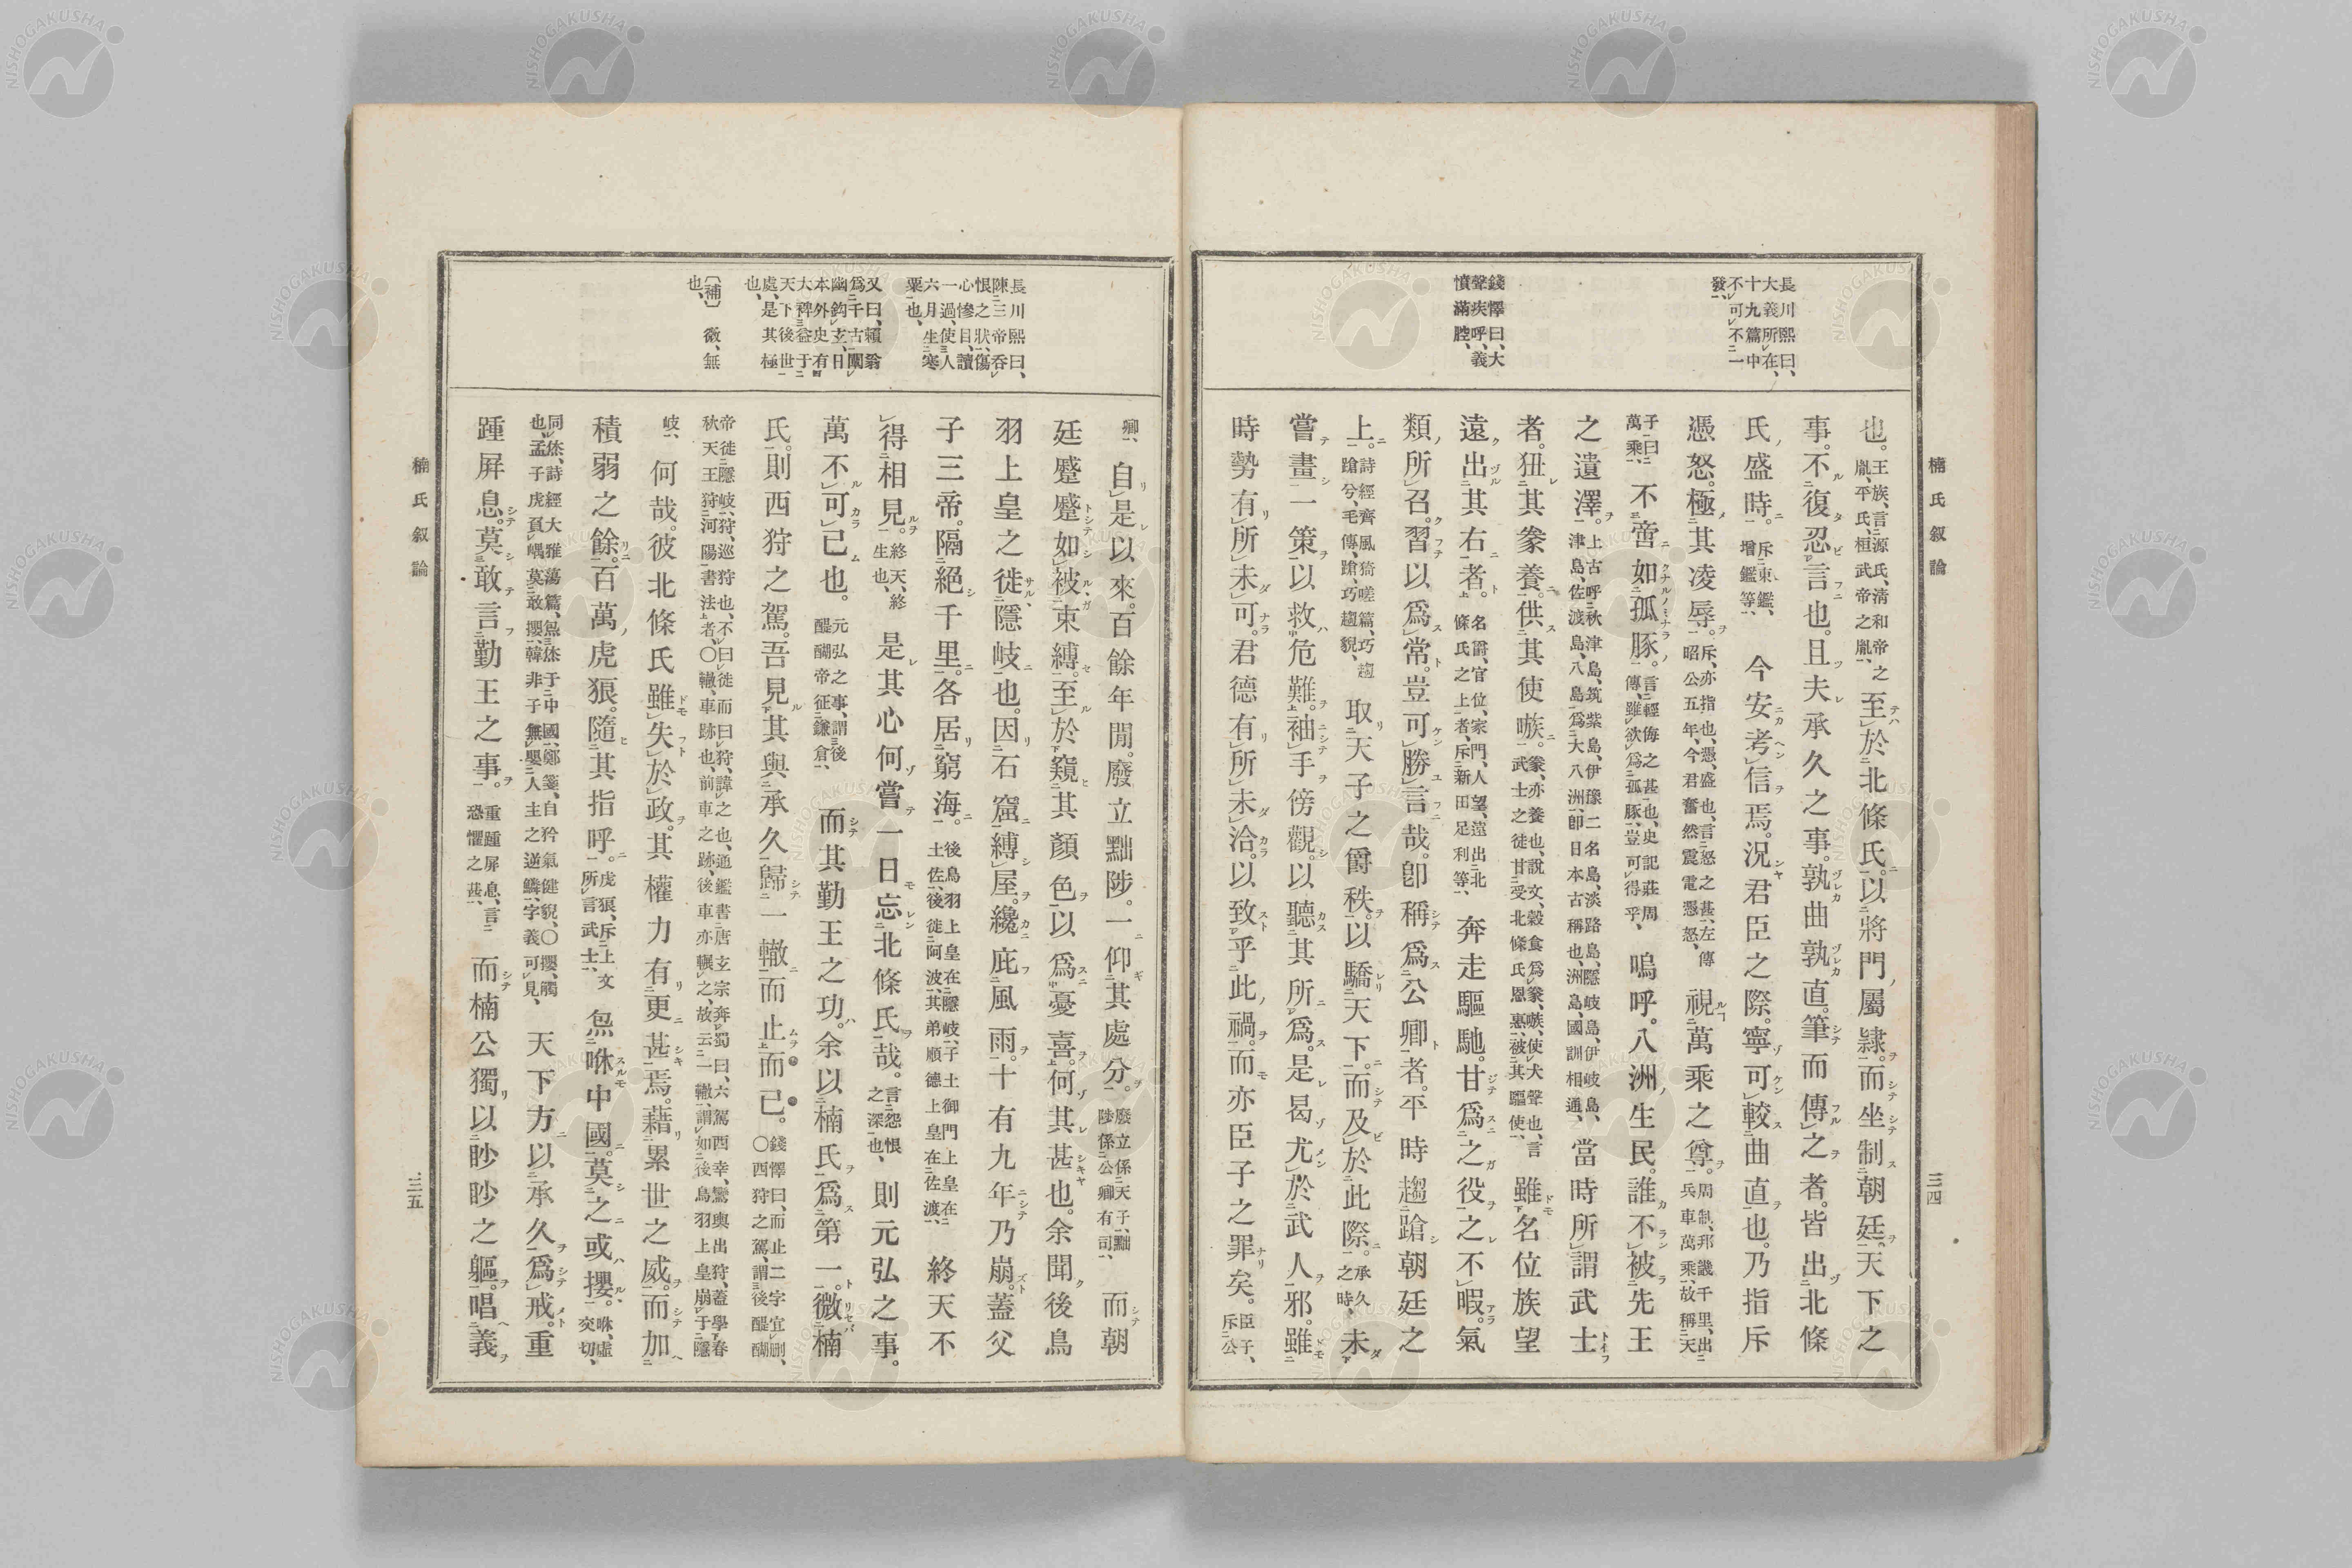 楠氏叙論
三四
長川熙曰、
大義所在、
十九篇中
不可不一
發、
錢懌曰、大
聲疾呼、義
憤滿腔、
也。王族、言源氏、清和帝之胤、平氏、桓武帝之胤、至於北條氏。以將門屬隷。而坐制朝廷。天下之
事。不復忍言也。且夫承久之事。孰曲孰直。筆而傳之者。皆出北條
氏盛時。斥東鑑、增鑑等、今安考信焉。況君臣之際。寧可較曲直也。乃指斥
憑怒。極其凌辱。斥、亦指也、憑、盛也、言怒之甚、左傳昭公五年、今君奮然震電憑怒、視萬乘之尊。周制、邦畿千里、出兵車萬乘、故稱天
子曰萬乘、不啻如孤豚。言輕侮之甚也、史記莊周傳、雖欲爲孤豚、豈可得乎、嗚呼。八洲生民。誰不被先王
之遺澤。上古呼秋津島、筑紫島、伊豫二名島、淡路島、隱岐島、伊岐島、津島、佐渡島、八島爲大八洲、卽日本古稱也、洲島、國訓相通、當時所謂武士
者。狃其豢養。供其使嗾。豢、亦養也、說文、穀食爲豢、嗾、使犬聲也、言武士之徒甘受北條氏恩惠、被其驅使、雖名位族望
遠出其右者。名爵、官位、家門、人望、遠出北條氏之上者、斥新田足利等、奔走驅馳。甘爲之役之不暇。氣
類所召。習以爲常。豈可勝言哉。卽稱爲公卿者。平時趨蹌朝廷之
上。詩經齊風猗嗟篇、巧趨蹌兮、毛傳、蹌、巧趨貌、取天子之爵秩。以驕天下。而及於此際。承久之時、未
嘗畫一策以救危難。袖手傍觀。以聽其所爲。是曷尤於武人邪。雖
時勢有所未可。君德有所未洽。以致乎此禍。而亦臣子之罪矣。臣子、斥公
長川熙曰、
陳三帝呑
恨之狀、傷
心慘目、讀
一過、使人
六月生寒
粟也、
又曰、賴翁
爲千古闡
幽鈎玄、日
本外史有
大裨益于
天下後世
處、是其極
也、
〔補〕 微、無
也、
卿、自是以來。百餘年閒。廢立黜陟。一仰其處分。廢立係天子、黜陟係公卿有司、而朝
廷蹙蹙如被束縛。至於窺其顏色以爲憂喜。何其甚也。余聞後鳥
羽上皇之徙隱岐也。因石窟縛屋。纔庇風雨。十有九年乃崩。蓋父
子三帝。隔絕千里。各居窮海。後鳥羽上皇在隱岐、子土御門上皇在土佐、後徙阿波、其弟順德上皇在佐渡、終天不
得相見。終天、終生也、是其心何嘗一日忘北條氏哉。言怨恨之深也、則元弘之事。
萬不可已也。元弘之事、謂後醍醐帝征鎌倉、而其勤王之功。余以楠氏爲第一。微楠
氏。則西狩之駕。吾見其與承久歸一轍而止而已。錢懌曰、而止二字宜刪、〇西狩之駕、謂後醍醐
帝徙隱岐、狩、巡狩也、不曰徙而曰狩、諱之也、通鑑書唐玄宗奔蜀曰、六駕西幸、鸞輿出狩、蓋學春秋天王狩河陽書法者、〇轍、車跡也、前車之跡、後車亦輾之、故云一轍、謂如後鳥羽上皇崩于隱
岐、何哉。彼北條氏雖失於政。其權力有更甚焉。藉累世之威。而加
積弱之餘。百萬虎狼。隨其指呼。虎狼、斥上文所言武士、炰咻中國。莫之或攖。咻、虛交切、
同烋、詩經大雅蕩篇、炰烋于中國、鄭箋、自矜氣健貌、〇攖、觸也、孟子虎負嵎莫敢攖、韓非子無嬰人主之逆鱗、字義可見、天下方以承久爲戒。重
踵屏息。莫敢言勤王之事。重踵屏息、言恐懼之甚、而楠公獨以眇眇之軀。唱義
楠氏叙論
三五